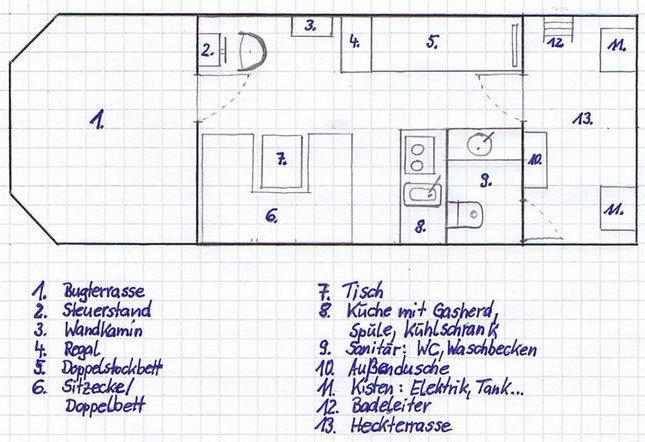 2.
3.
4.
5.
12.
11.
1.
13.
7.
10.
9.
6.
8.
11.
1. Bugterrasse
2. Steuerstand
3. Wandkamin
4. Regal
5. Doppelstockbett
6. Sitzecke/
Doppelbett
7. Tisch
8. Küche mit Gasherd,
Spüle, Kühlschrank
9. Sanitär: WC, Waschbecken
10. Außendusche
11. Kisten: Elektrik, Tank...
12. Badeleiter
13. Heckterrasse